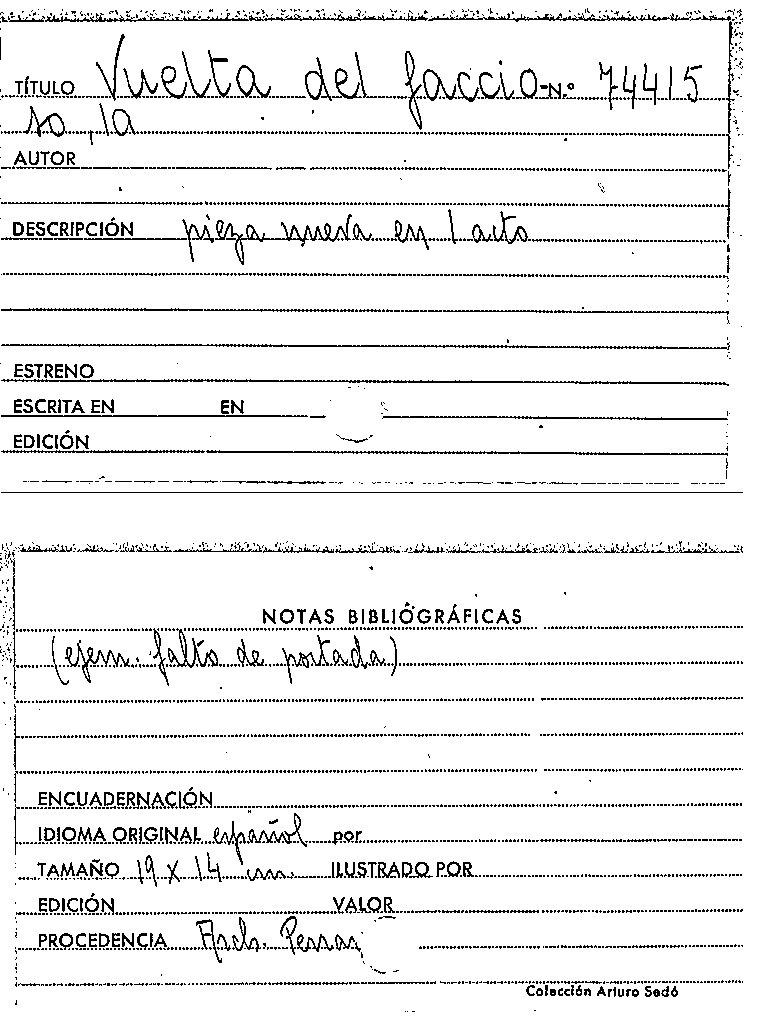 TÍTULO Vuelta del faccio- N.º 74415
so, la
AUTOR
DESCRIPCIÓN pieza nueva en 1 acto
ESTRENO
ESCRITA EN EN
EDICIÓN
NOTAS BIBLIOGRÁFICAS
(ejem. falto de portada)
ENCUADERNACIÓN
IDIOMA ORIGINAL español por
TAMAÑO 19 X 14 cm. ILUSTRADO POR
EDICIÓN VALOR
PROCEDENCIA Arch.
Colección Arturo Sedó